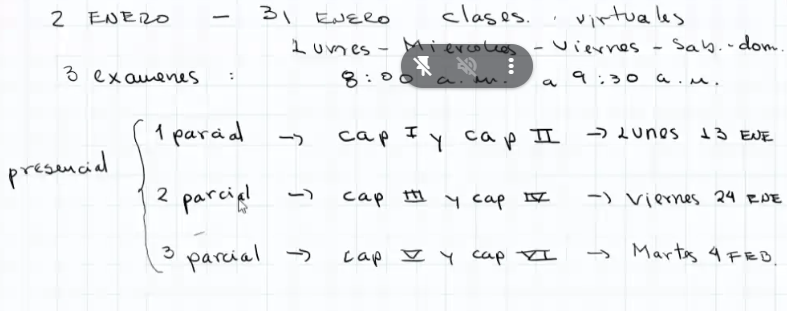 2 ENERO - 31 ENERO clases. virtuales
Lunes - Miercoles - Viernes - Sab. - dom.
3 examenes : 8:00 a.m. a 9:30 a.m.
1 parcial → cap I y cap II → Lunes 13 ENE
presencial
2 parcial → cap III y cap IV → Viernes 24 ENE
3 parcial → cap V y cap VI → Martes 4 FEB.